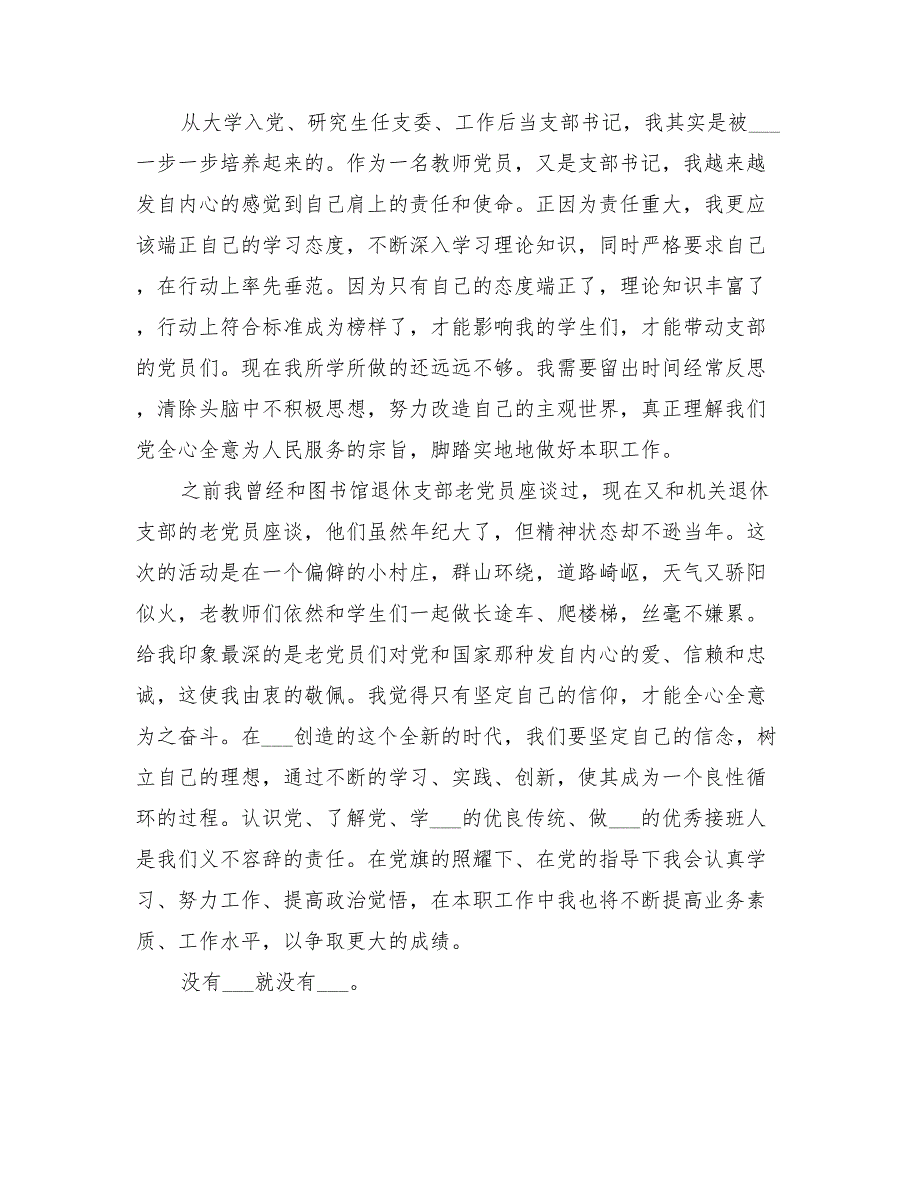 从大学入党、研究生任支委、工作后当支部书记，我其实是被___
一步一步培养起来的。作为一名教师党员，又是支部书记，我越来越
发自内心的感觉到自己肩上的责任和使命。正因为责任重大，我更应
该端正自己的学习态度，不断深入学习理论知识，同时严格要求自己
，在行动上率先垂范。因为只有自己的态度端正了，理论知识丰富了
，行动上符合标准成为榜样了，才能影响我的学生们，才能带动支部
的党员们。现在我所学所做的还远远不够。我需要留出时间经常反思
，清除头脑中不积极思想，努力改造自己的主观世界，真正理解我们
党全心全意为人民服务的宗旨，脚踏实地地做好本职工作。
之前我曾经和图书馆退休支部老党员座谈过，现在又和机关退休
支部的老党员座谈，他们虽然年纪大了，但精神状态却不逊当年。这
次的活动是在一个偏僻的小村庄，群山环绕，道路崎岖，天气又骄阳
似火，老教师们依然和学生们一起做长途车、爬楼梯，丝毫不嫌累。
给我印象最深的是老党员们对党和国家那种发自内心的爱、信赖和忠
诚，这使我由衷的敬佩。我觉得只有坚定自己的信仰，才能全心全意
为之奋斗。在___创造的这个全新的时代，我们要坚定自己的信念，树
立自己的理想，通过不断的学习、实践、创新，使其成为一个良性循
环的过程。认识党、了解党、学___的优良传统、做___的优秀接班人
是我们义不容辞的责任。在党旗的照耀下、在党的指导下我会认真学
习、努力工作、提高政治觉悟，在本职工作中我也将不断提高业务素
质、工作水平，以争取更大的成绩。
没有___就没有___。